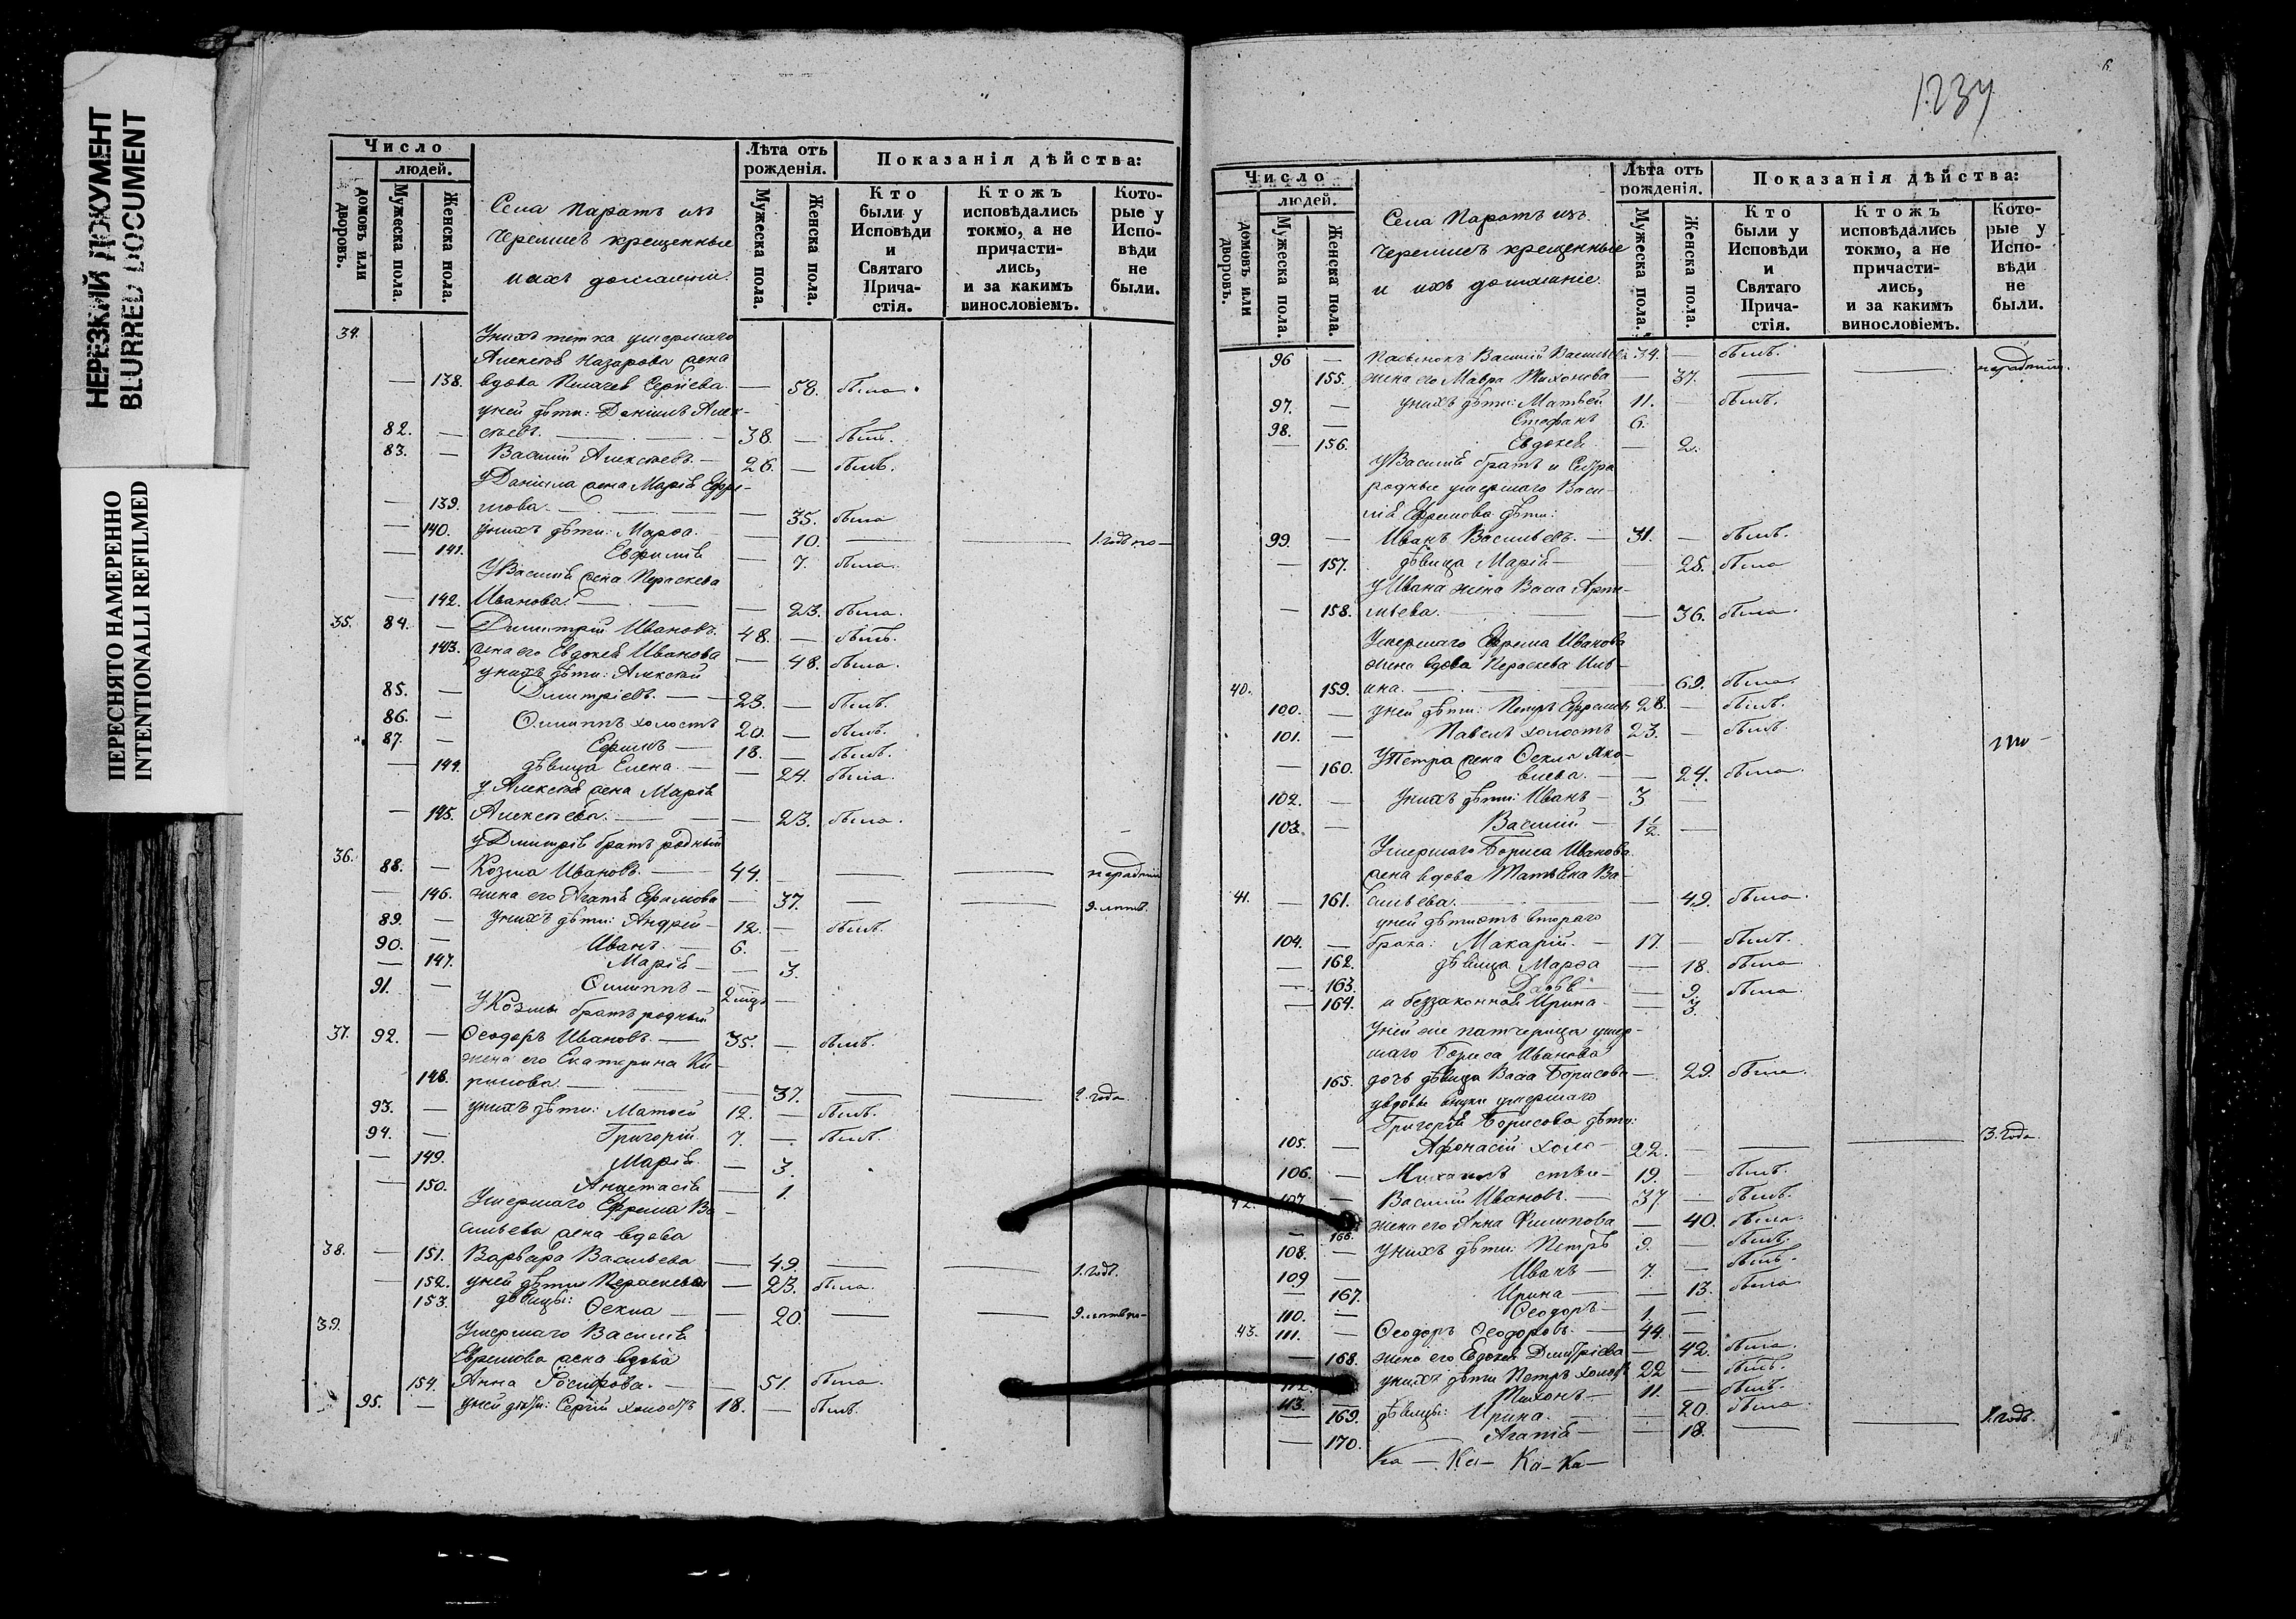 НЕРЕЗКИЙ ДОКУМЕНТ
BLURRED DOCUMENT
ПЕРЕСНЯТО НАМЕРЕННО
INTENTIONALLI REFILMED
Число
людей.
домовъ или дворовъ.
Мужеска пола.
Женска пола.
Села Паратъ изъ
Черемисъ крещенные
и ихъ домашніе.
Лѣта отъ рожденія.
Мужеска пола.
Женска пола.
Показанія дѣйства:
Кто были у Исповѣди и Святаго Причастія.
Ктожъ исповѣдались токмо, а не причастились, и за какимъ винословіемъ.
Которые у Исповѣди не были.
34. У нихъ тетка умершаго
Алексѣя Назарова жена
— 138. вдова — 58. была.
у ней дѣти: Даніилъ Алек-
82. — сѣевъ. — 38. — былъ.
83. — Василій Алексѣевъ. — 26. — былъ.
у Даніила жена Марія Ефи-
— 139. мова. — 35. была
— 140. у нихъ дѣти: Марѳа. — 10. — — 1. годъ по —
— 141. Евфимія — 7. была.
у Василія жена Параскева
— 142. Иванова. — 23. была.
35. 84. — Димитрій Ивановъ. 48. — былъ.
143. жена его Евдокія Иванова — 48. была.
у нихъ дѣти: Алексѣй
85. — Димитріевъ. — 23. — былъ.
86. — Филиппъ холостъ 20. — былъ.
87. — Ефимъ — 18. — былъ.
— 144. дѣвица Елена. — 24. была.
у Алексѣя жена Марія
— 145. Алексѣева. — 23. была.
у Димитрія братъ родный
36. 88. — Козма Ивановъ. — 44. — —
— 146. жена его Агаѳія Ефимова — 37. — — 9. лѣтъ.
89. — У нихъ дѣти: Андрей — 12. — былъ.
90. — Иванъ. — 6. —
— 147. Марія — — 3.
91. — Филиппъ — 2 —
У Козмы братъ родный
37. 92. — Ѳеодоръ Ивановъ. — 35. — былъ.
жена его Екатерина Ки-
148. рилова. — 37. — — 2. года
93. — у нихъ дѣти: Матѳей 12. — былъ.
94. — Григорій. 7. — былъ.
— 149. Марія. — 3.
— 150. Анастасія — 1.
Умершаго Ефрема Ва-
сильева жена вдова
38. — 151. Варвара Васильева — 49. — — 1. годъ.
— 152. у ней дѣти Параскева — 23. была.
153. дѣвицы: Ѳекла — — 20. — — 9. лѣтъ по —
39. Умершаго Василія
Ефремова жена вдова
154. Анна Іосифова. — 51. была.
95. — у ней дѣти: Сергій холостъ 18. — былъ.
1234
6.
Число
людей.
домовъ или дворовъ.
Мужеска пола.
Женска пола.
Села Паратъ изъ
Черемисъ крещенные
и ихъ домашніе.
Лѣта отъ рожденія.
Мужеска пола.
Женска пола.
Показанія дѣйства:
Кто были у Исповѣди и Святаго Причастія.
Ктожъ исповѣдались токмо, а не причастились, и за какимъ винословіемъ.
Которые у Исповѣди не были.
96 — Пасынокъ Василій Васильевъ 34. — былъ.
155. жена его Мавра Тихонова — 37. — —
97. — у нихъ дѣти: Матѳей 11. — былъ.
98. — Стефанъ 6.
— 156. Евдокія — 2.
у Василія братъ и сестра
родные умершаго Васи-
лія Ефремова дѣти:
99. — Иванъ Васильевъ. — 31. — былъ.
— 157. дѣвица Марія — — 25. была
у Ивана жена Васса Арте-
— 158. мьева. — 36. была.
Умершаго Ефрема Иванова
жена вдова Параскева Иль-
40. 159. ина. — 69. была.
100. — у ней дѣти: Петръ Ефремовъ 28. — былъ.
101. — Павелъ холостъ 23. — былъ.
у Петра жена Ѳекла Яко-
— 160. влева. — — 24. была.
102. — У нихъ дѣти: Иванъ — 3 —
103. — Василій — 1½. —
Умершаго Бориса Иванова
жена вдова Татьяна Ва-
41. — 161. сильева. — 49. была.
у ней дѣти отъ втораго
104. — брака: Макарій. — 17. — былъ.
— 162. дѣвица Марѳа — 18. была
— 163. Дарья — 9. была.
— 164. и беззаконная Ирина — — 3.
у ней же патчерица умер-
шаго Бориса Иванова
165. дочь дѣвица Васса Борисова — 29. была.
у вдовы внуки умершаго
Григорія Борисова дѣти:
105. — Афонасій холо- 22. — — — 3. года.
106. — Михаилъ стые — 19. — былъ.
42. 107. — Василій Ивановъ. — 37 — былъ.
— 166. жена его Анна Филипова — 40. была.
108. — у нихъ дѣти: Петръ 9. — былъ.
109 — Иванъ — 7. — былъ.
— 167. Ирина — — 13. была
110. — Ѳеодоръ — 1. —
43. 111. — Ѳеодоръ Ѳеодоровъ. — 44. —
— 168. жена его Евдокія Димитріева — 42. была.
112. — у нихъ дѣти Петръ холостъ 22 — былъ.
113. — Тихонъ — 11. — былъ.
— 169. дѣвицы: Ирина. — 20. была.
— 170. Агаѳія — — 18. — — 1. годъ.
Ка — Ка — Ка — Ка —